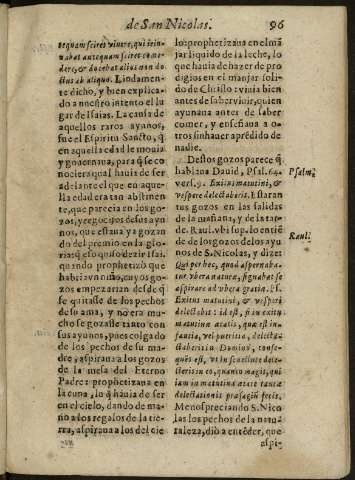 de San Nicolas. 96
tequam sciret vivere, qui ieiu-
nabat antequam sciret come-
dere, & docebat alios non do-
ctus ab aliquo. Lindamen-
te dicho, y bien explica-
do a nuestro intento el lu-
gar de Isaias. La causa de
aquellos raros ayunos,
fue el Espiritu Sancto, q̃
en aquella edad le mouia
y gouernaua, para q̃ se co-
nociera qual hauia de ser
adelante el que en aque-
lla edad era tan abstinen-
te, que parecia en los go-
zos, y regocijos de sus ayu-
nos, que estaua ya gozan-
do del premio en la glo-
ria: q̃ eso quiso dezir Isai.
quando prophetizó que
habria vn niño, cuyos go-
zos empezarian desde q̃
se quitasse de los pechos
de su ama, y no era mu-
cho se gozasse tanto con
sus ayunos, pues colgado
de los pechos de su ma-
dre, aspiraua a los gozos
de la mesa del Eterno
Padre: prophetizaua en
la cuna, lo q̃ hauia de ser
en el cielo, dando de ma-
no a los regalos de la tie-
rra, aspiraua a los del cie
lo: prophetizaua en el mã
jar liquido de la leche, lo
que hauia de hazer de pro
digios en el manjar soli-
do de Christo: viuia bien
antes de saber viuir, quien
ayunaua antes de saber
comer, y enseñaua a o-
tros sin hauer aprẽdido de
nadie.
Destos gozos parece q̃
hablaua Dauid, Psal. 64.
vers. 9. Exitus matutini, &
vespere delectaberis. Estaran
tus gozos en las salidas
de la mañana, y de la tar-
de. Raul. vbi sup. lo entiẽ
de de los gozos de los ayu
nos de S. Nicolas, y dize:
Qui per hoc, quod aspernaba-
tur vbera naturæ, signabat se
aspirare ad vbera gratiæ. Ps.
Exitus matutini, & vesperi
delectabit: id est, si in exitu
matutinæ ætatis, quæ est in-
fantia, vel pueritia, delecta-
batur in Domino, conse-
quẽs est, vt in senectute dele-
cteris in eo, quanto magis, qui
iam in matutina ætate tantæ
delectationis præsagiũ fecit.
Menospreciando S. Nico
las los pechos de la natu
raleza, dió a entẽder, que
aspi-
Psalm.
Raul.